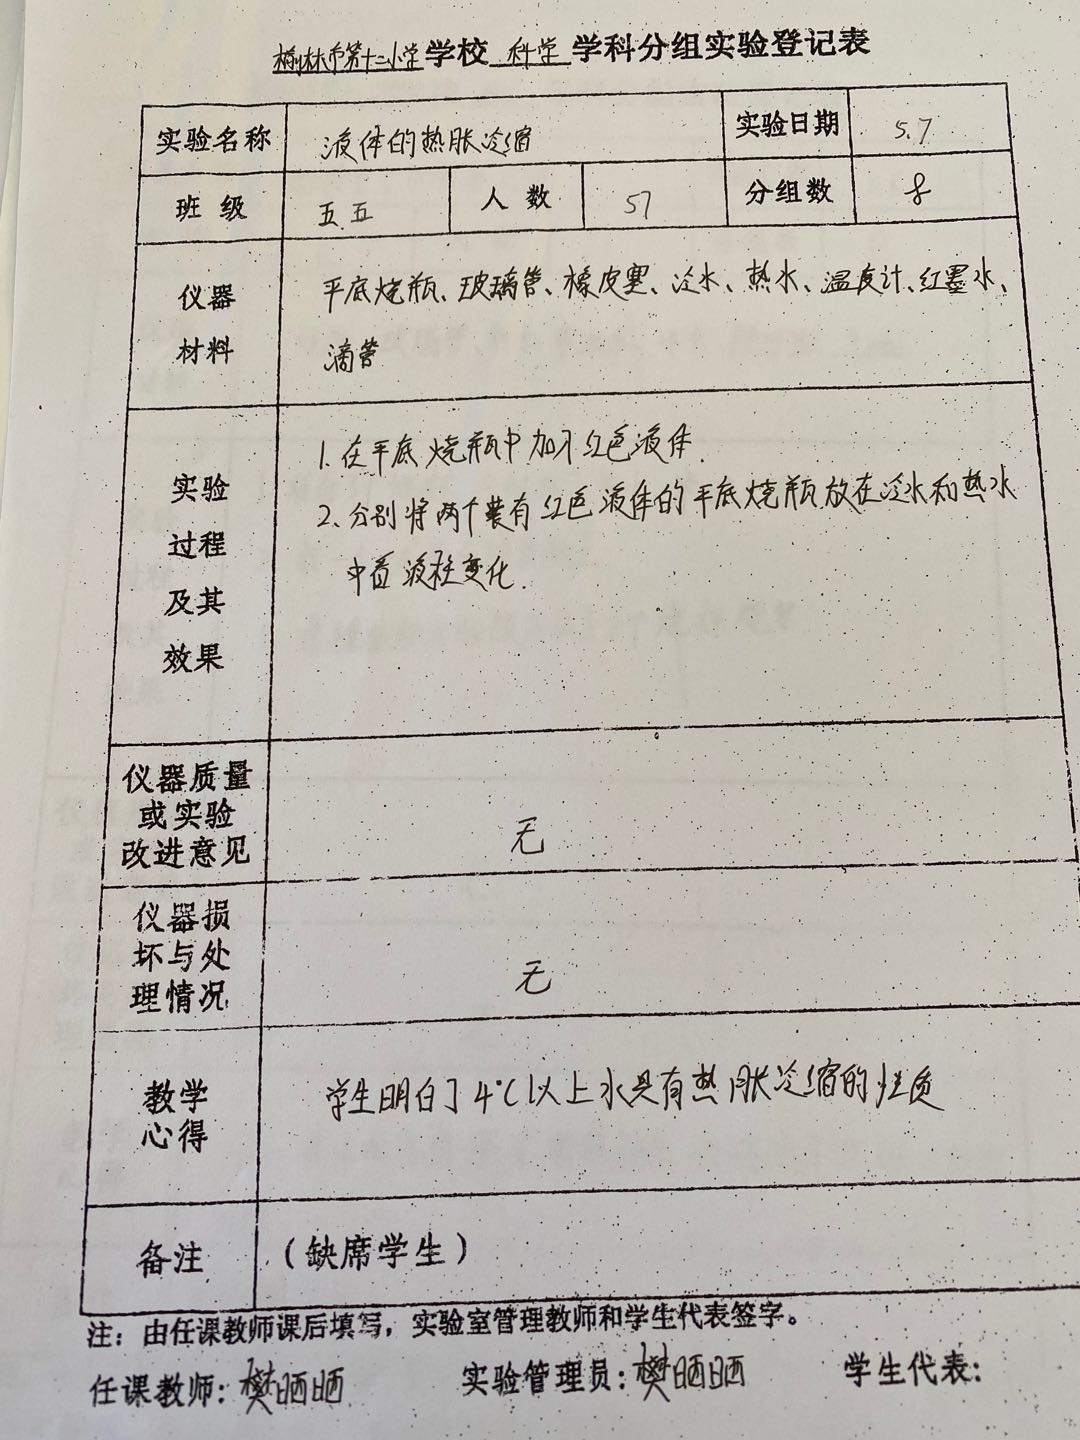 榆林市第十二小学学校 科学 学科分组实验登记表
实验名称 液体的热胀冷缩 实验日期 5.7
班级 五五 人数 57 分组数 8
仪器材料 平底烧瓶、玻璃管、橡皮塞、冷水、热水、温度计、红墨水、
滴管
实验过程及其效果 1.在平底烧瓶中加入红色液体.
2、分别将两个装有红色液体的平底烧瓶放在冷水和热水
中看液柱变化.
仪器质量或实验改进意见 无
仪器损坏与处理情况 无
教学心得 学生明白了4℃以上水具有热胀冷缩的性质
备注 （缺席学生）
注：由任课教师课后填写，实验室管理教师和学生代表签字。
任课教师：樊晒晒 实验管理员：樊晒晒 学生代表：